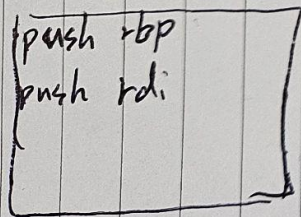 push rbp
push rdi